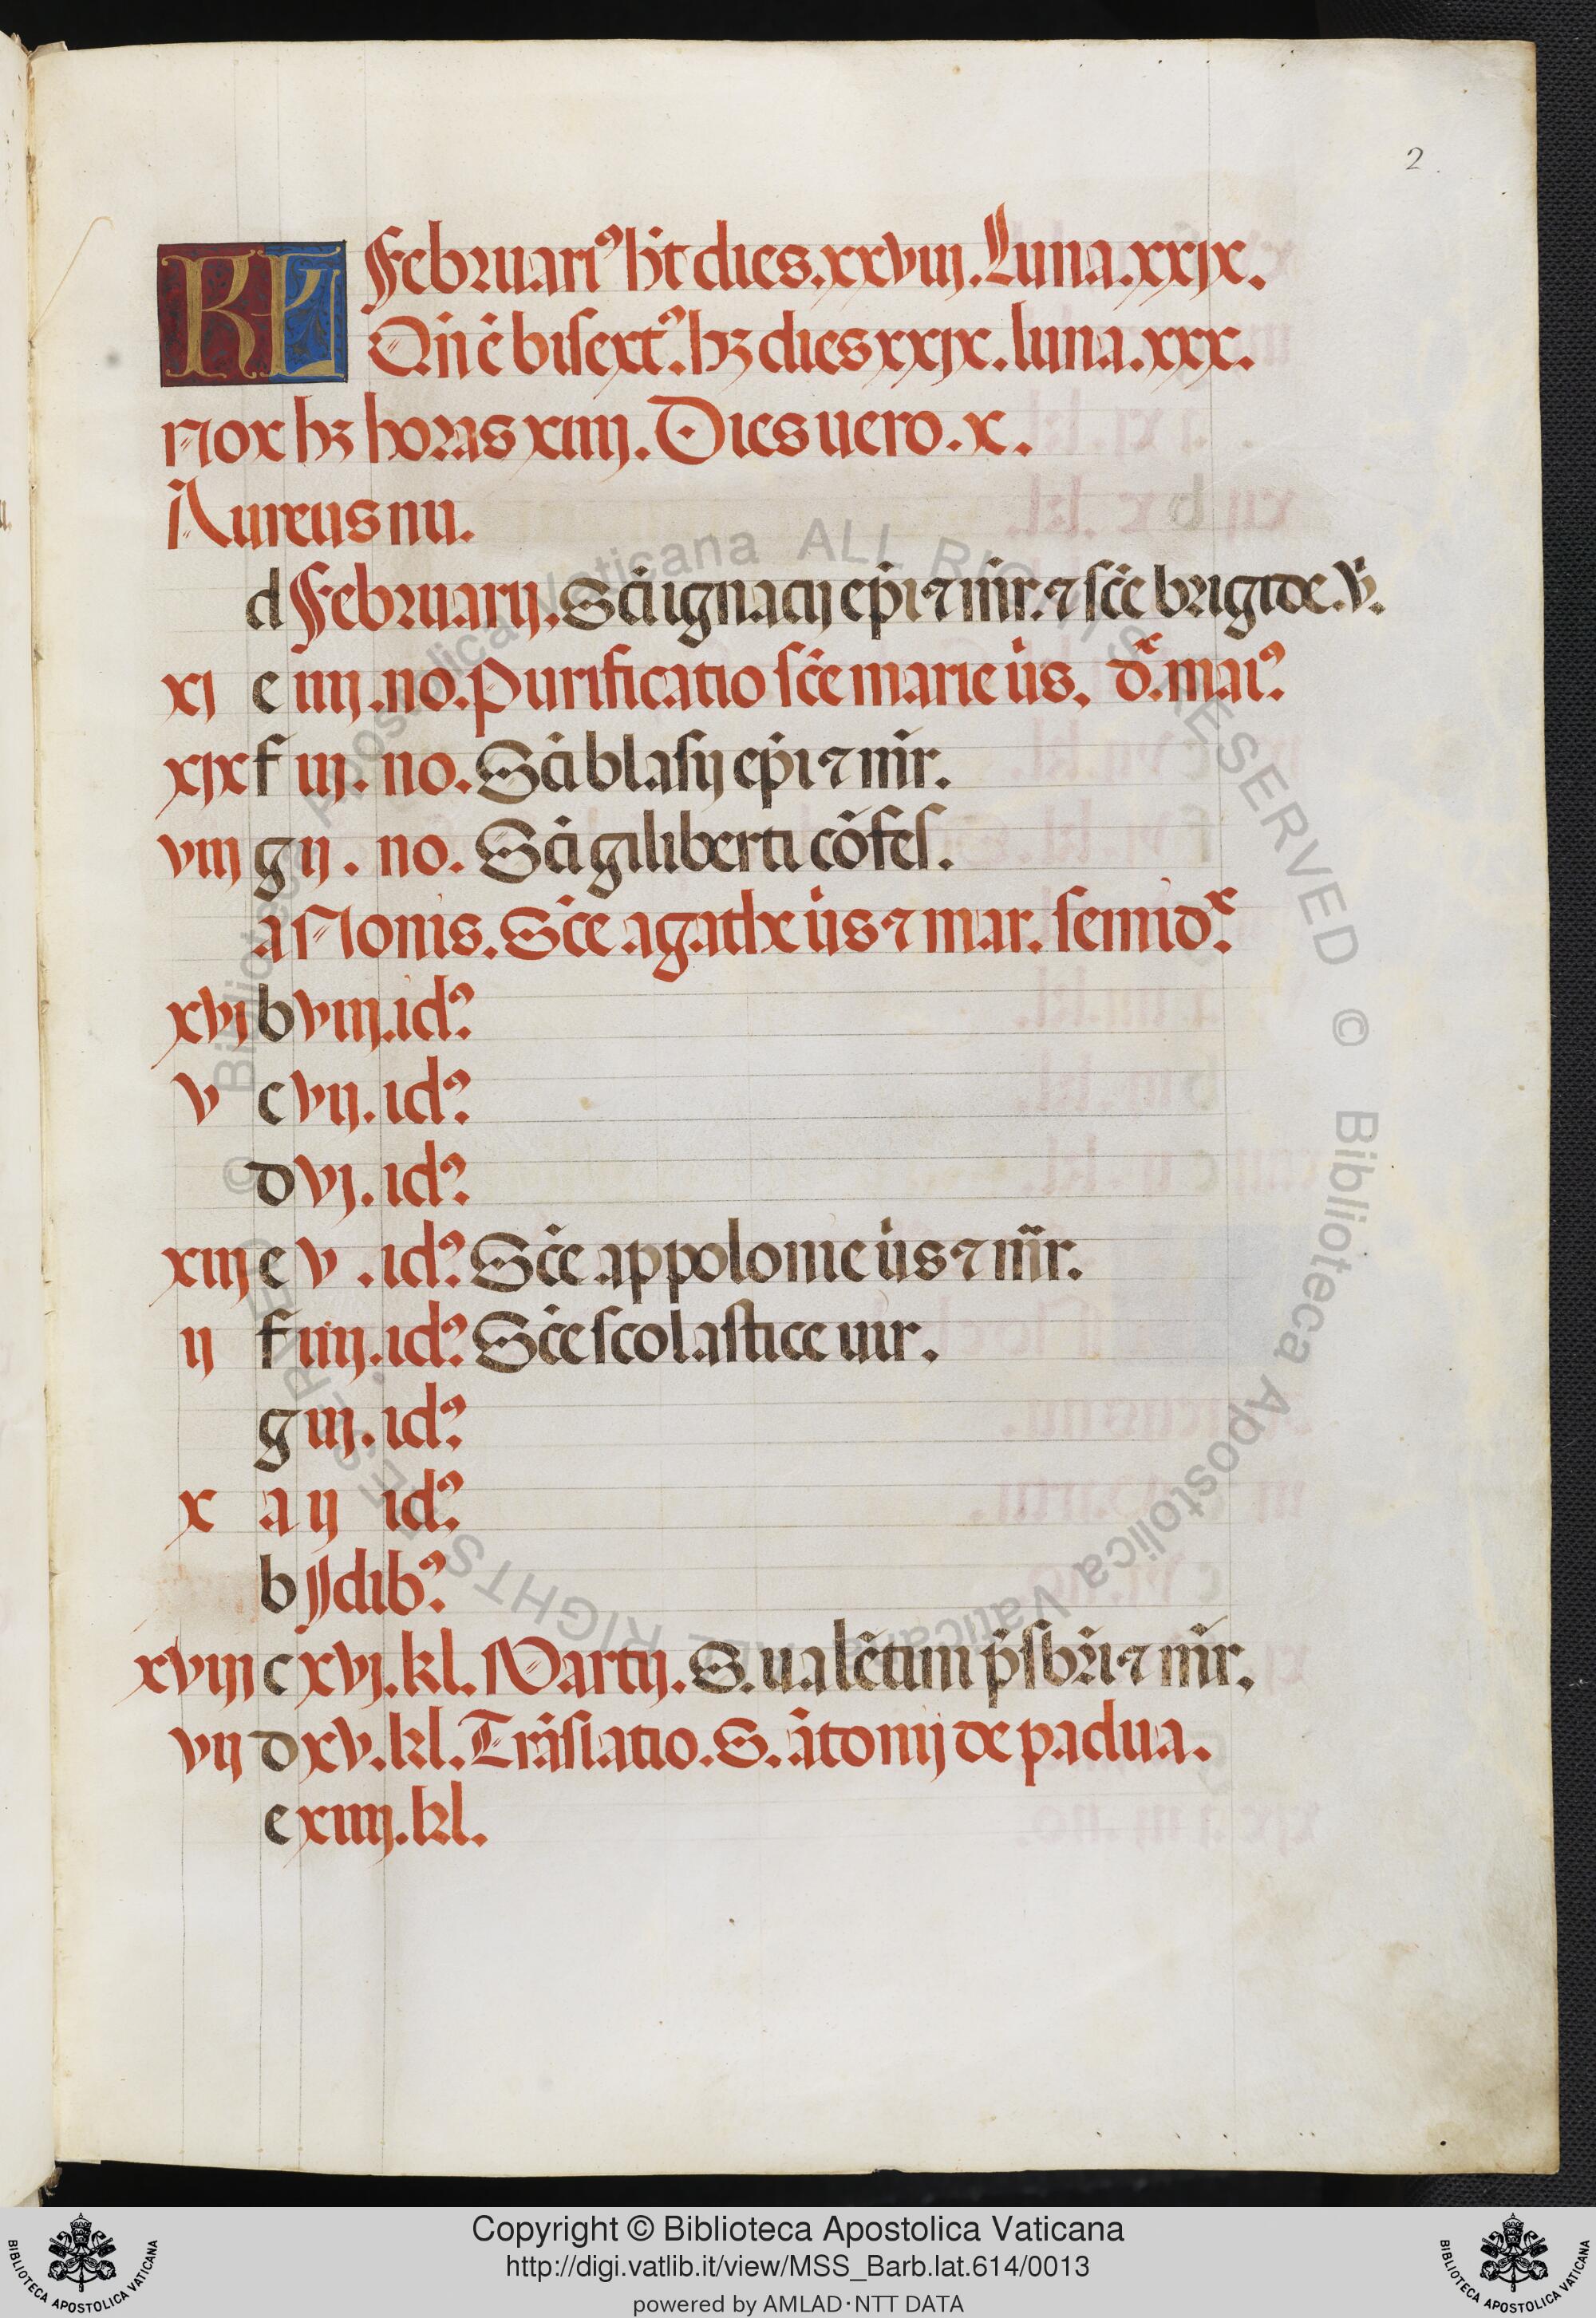 2
KL Februari⁹ h̄t dies.xxviij.Luna.xxjx.
Qn̄ ē bisext⁹.hꝫ dies xxjx.luna.xxx.
Nox hꝫ horas xiiij.Dies uero.x.
Aureus nu.
d Februarij.Sc̄i ignacij ep̄i ⁊ mr̄.⁊ sc̄e brigide.v̄.
xj e iiij.no.Purificatio sc̄e marie ūs. d̄x.mai⁹.
xjx f iij. no.Sc̄i blasij ep̄i ⁊ mr̄.
viij g ij. no. Sc̄i giliberti cōfes.
a Nonis.Sc̄e agathe ūs ⁊ mar. semidx.
xvj b viij.id⁹.
v c vij.id⁹.
d vj.id⁹.
xiij e v .id⁹.Sc̄e appolonie ūs ⁊ mr̄.
ij f iiij.id⁹.Sc̄e scolastice uir.
g iij.id⁹.
x a ij id⁹.
b Jdib⁹.
xviij c xvj.kl.Martij.S.ualētini p̄sbri ⁊ mr̄.
vij d xv.kl.Trāslatio.S.ātonij de padua.
e xiiij.kl.
© Biblioteca Apostolica Vaticana ALL RIGHTS RESERVED © Biblioteca Apostolica Vaticana ALL RIGHTS RESERVED
BIBLIOTECA APOSTOLICA VATICANA
Copyright © Biblioteca Apostolica Vaticana
http://digi.vatlib.it/view/MSS_Barb.lat.614/0013
powered by AMLAD·NTT DATA
BIBLIOTECA APOSTOLICA VATICANA